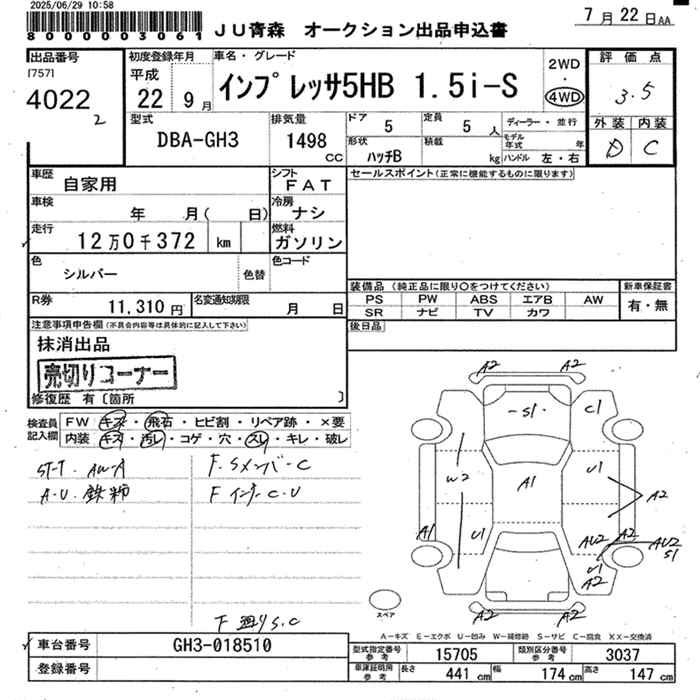 2025/06/29 10:58
8000003061
JU青森 オークション出品申込書
7月22日AA
出品番号
[757]
4022
2
初度登録年月
平成
22 9月
車名・グレード
インプレッサ5HB 1.5i-S
2WD
・
4WD
評価点
3.5
外装 内装
D C
型式
DBA-GH3
排気量
1498
CC
ドア
5
定員
5 人
ディーラー・並行
形状
ハッチB
積載
kg
モデル年式 年
ハンドル 左・右
車歴
自家用
シフト
FAT
セールスポイント(正常に機能するものに限ります)
車検
年 月( 日)
冷房
ナシ
走行
12万0千372 km
燃料
ガソリン
色
シルバー
色替
色コード
装備品 (純正品に限り○をつけてください)
新車保証書
PS PW ABS エアB AW
SR ナビ TV カワ
有・無
R券
11,310円
名変通知期限
月 日
後日品
注意事項申告欄(不具合内容等は具体的に記入して下さい)
抹消出品
売切りコーナー
修復歴 有〔箇所 〕
検査員記入欄
FW キズ・飛石・ヒビ割・リペア跡・×要
内装 キズ・汚レ・コゲ・穴・スレ・キレ・破レ
ST-T. AW-A
A-U. 鉄粉
F.Sメンバ-C
F インナーC.U
F 廻りS.C
A2 A2
S1 C1
W2 A1 U1
A2
A1 U1
AU2 A2 AU2
S1
U1
A2
A2 A2
スペア
A-キズ E-エクボ U-凹み W-補修跡 S-サビ C-腐食 XX-交換済
車台番号
GH3-018510
登録番号
型式指定番号参考
15705
類別区分番号参考
3037
車庫証明用参考
長さ
441 cm
幅
174 cm
高さ
147 cm